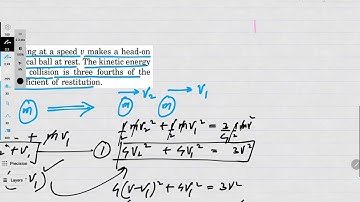 ng at a speed v makes a head-on
cal ball at rest. The kinetic energy
collision is three fourths of the
icient of restitution.
m ⟹ m → V₂ m → V₁
+ mV₁
½mV₂² + ½mV₁² = 3/4 ½mv²
V₂ + V₁ ① 4V₂² + 4V₁² = 3V²
V₁)² 4(V-V₁)² + 4V₁² = 3V²
Precision